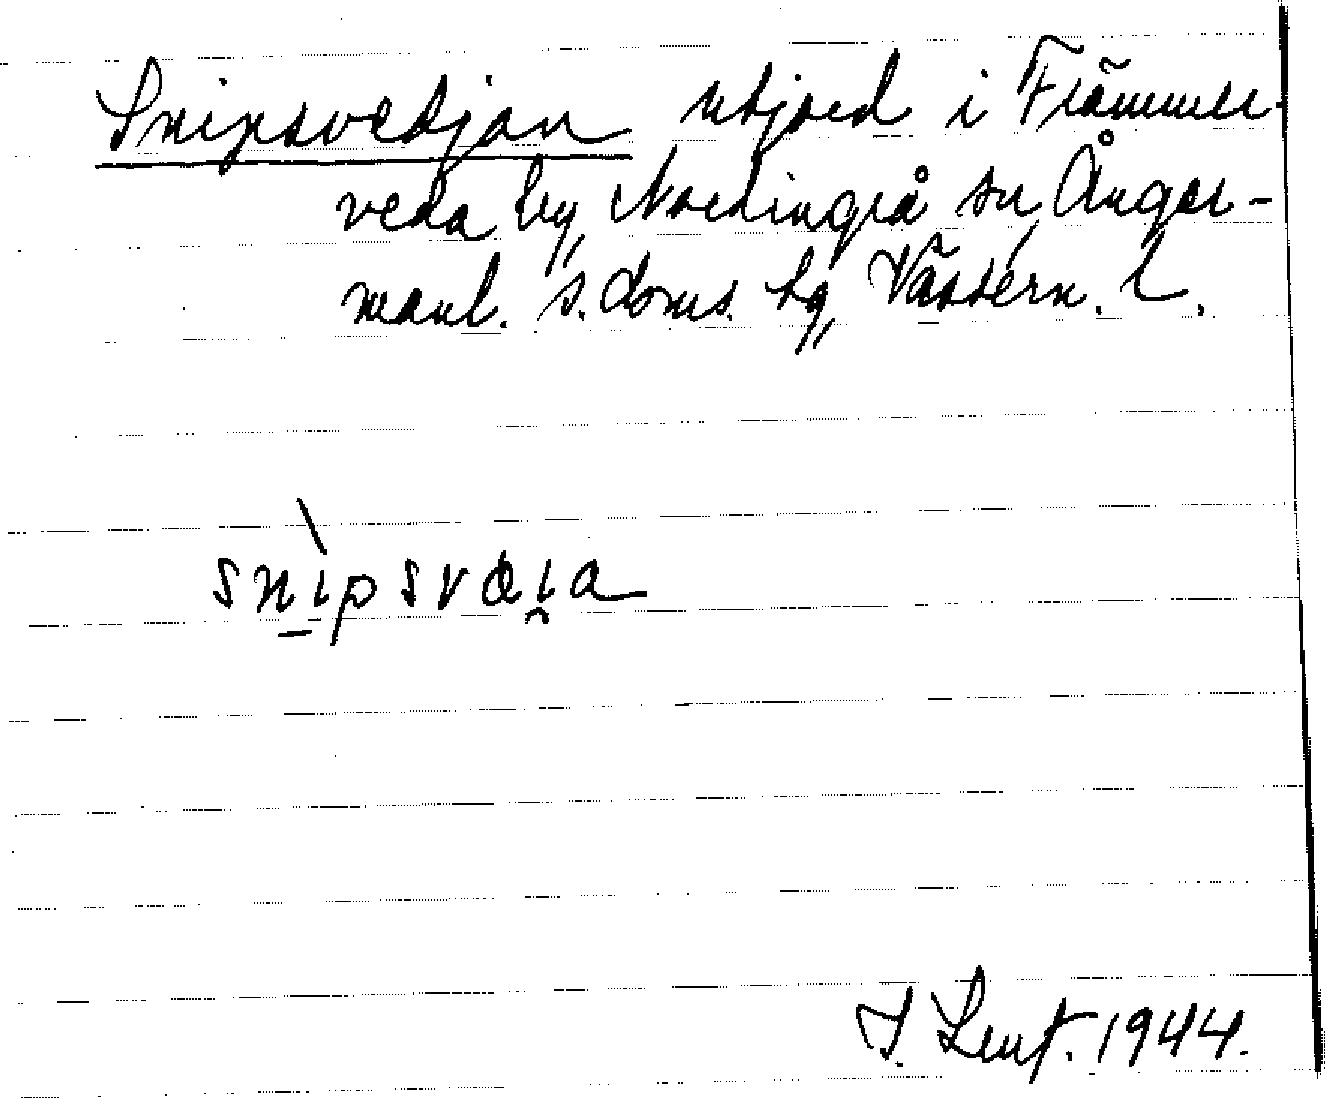 Snipsvedjan utjord i Främmer-
veda by, Nordingrå sn, Ånger-
manl. s. doms. hg, Västern. l.
snipsvæia
J. Lenf. 1944.